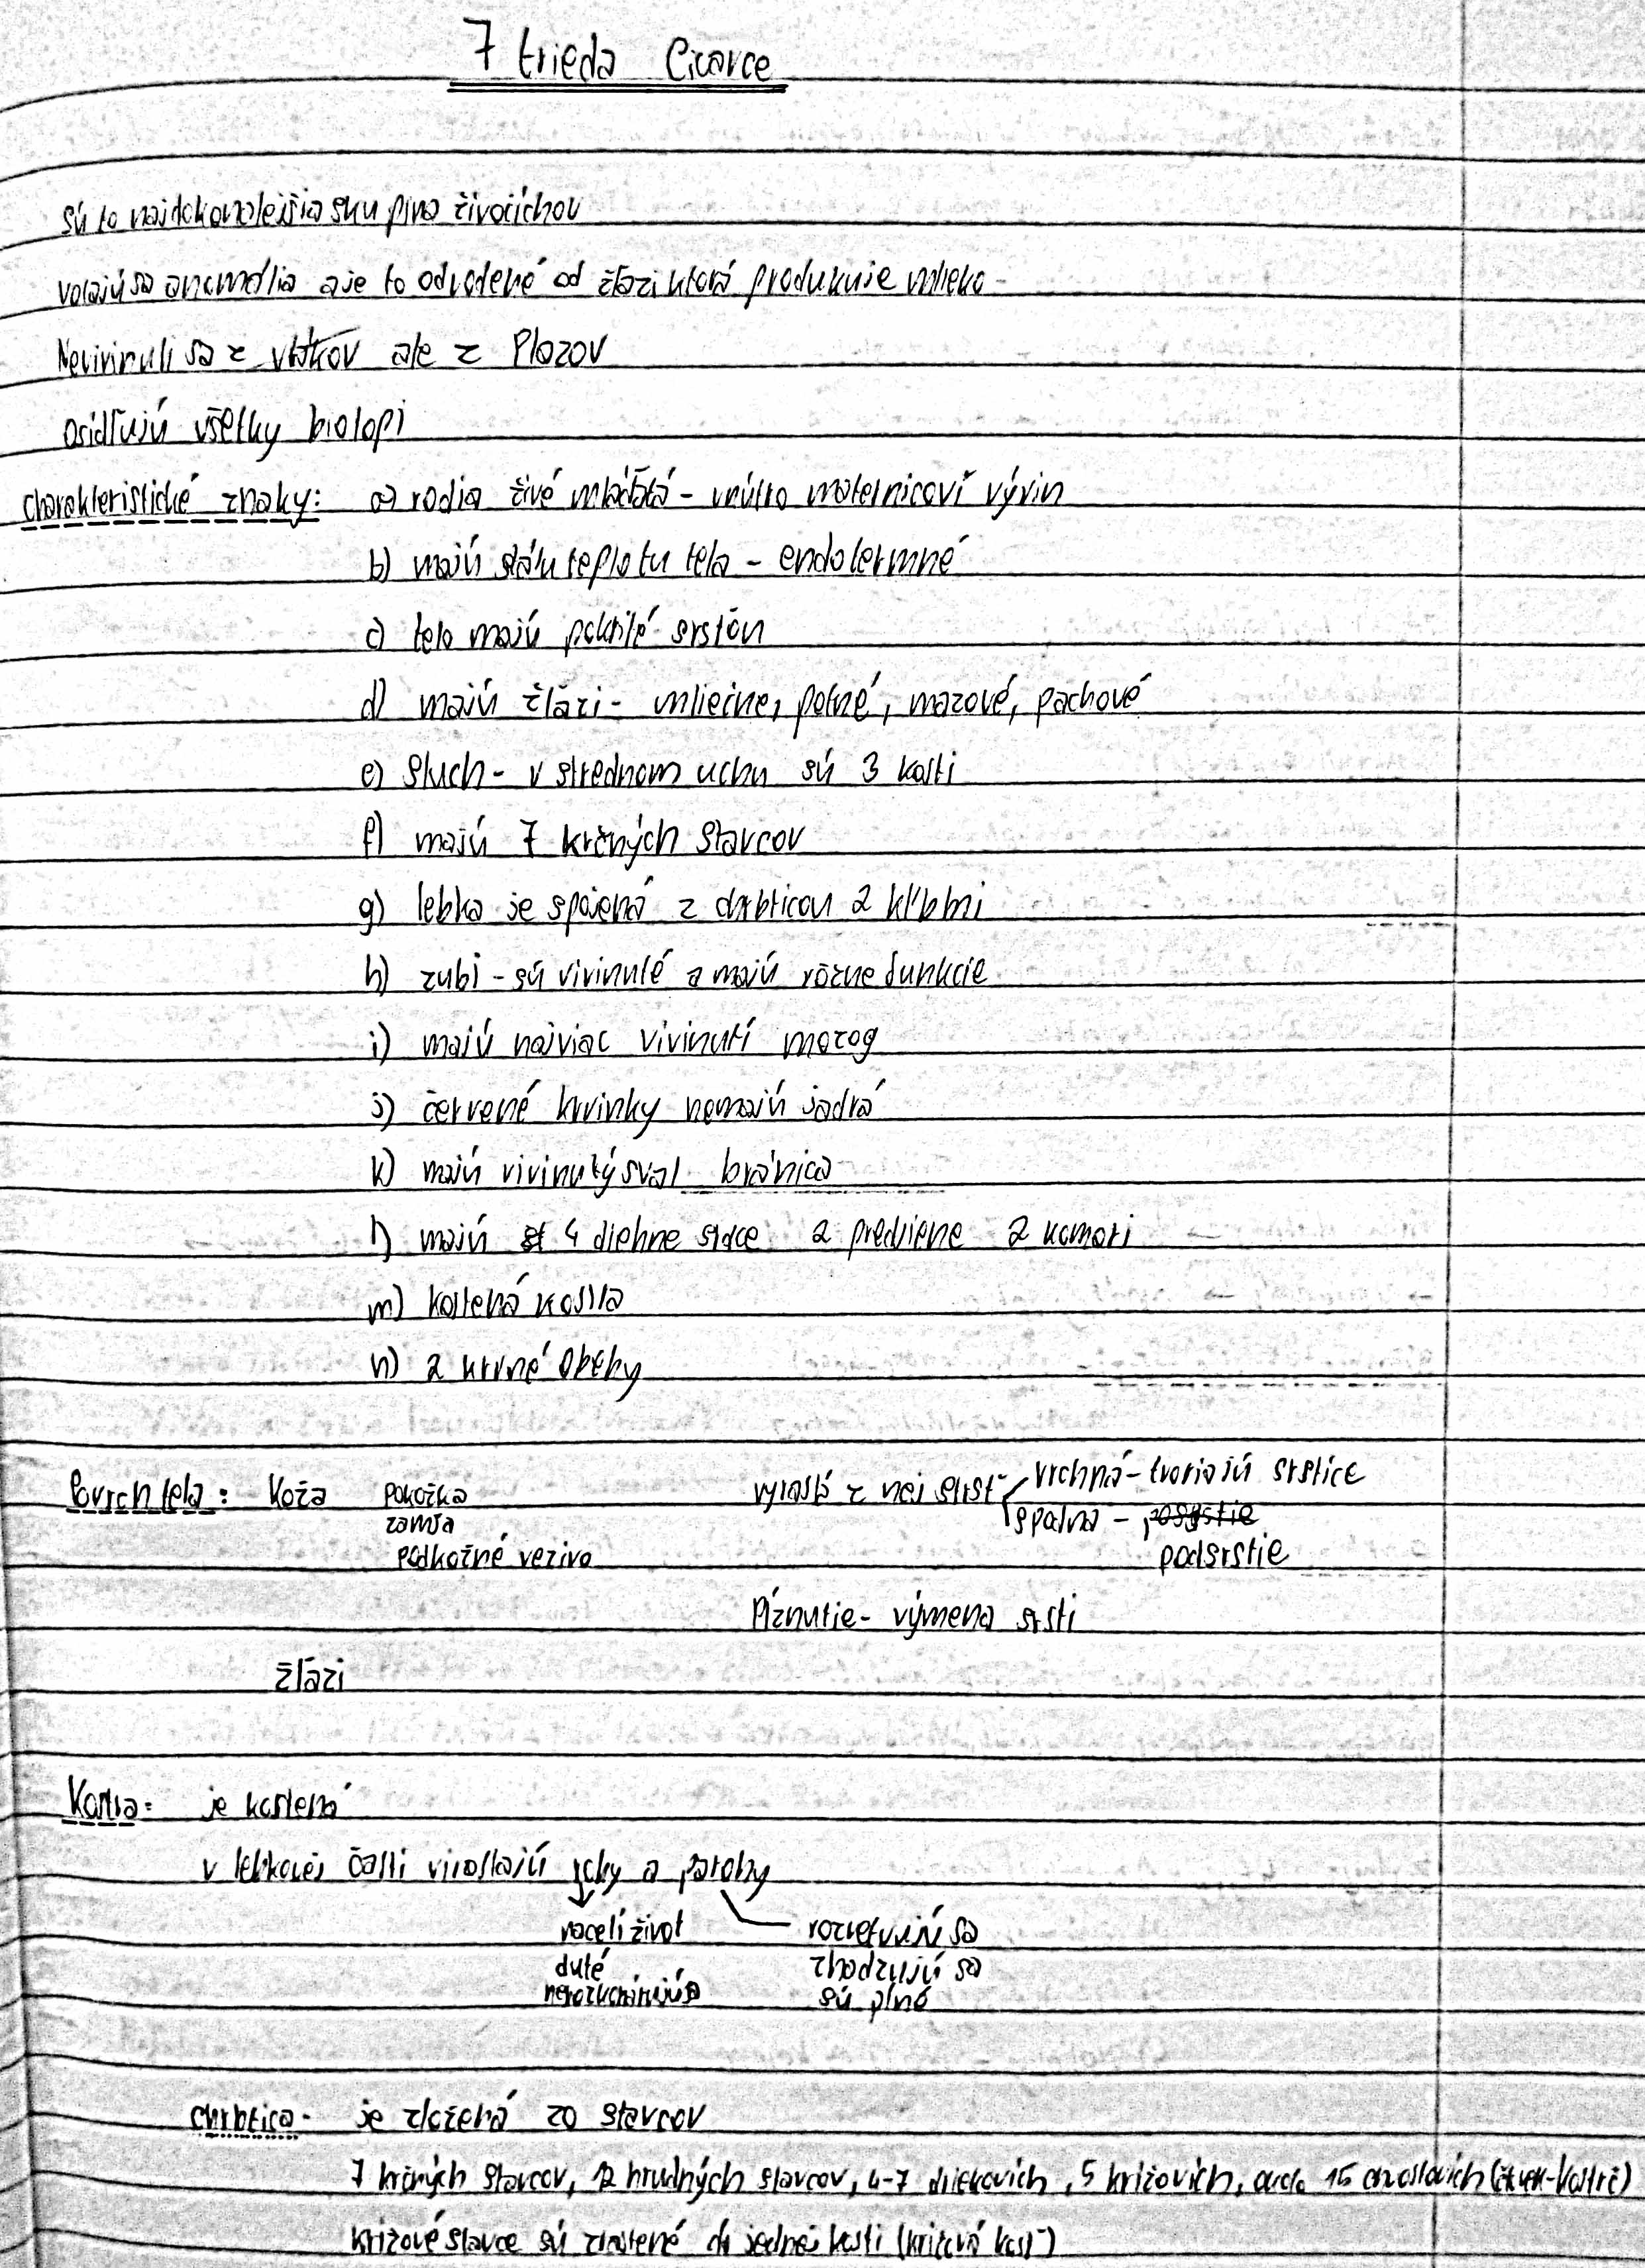 7 trieda Cicavce
sú to najdokonalejšia skupina živočíchov
volajú sa a je to odvodené od žlazi ktorá produkuje mlieko
Nevivinuli sa z vtákov ale z Plazov
osídľujú všetky biotopi
charakteristické znaky: a) rodia živé mláďatá - vnútro maternicoví vývin
b) majú stálu teplotu tela - endotermné
c) telo majú pokrité srsťou
d) majú žlázi - mliečne, potné, mazové, pachové
e) sluch - v strednom uchu sú 3 kosti
f) majú 7 krčných stavcov
g) lebka je spojená z chrbticou 2 kĺbmi
h) zubi - sú vivinuté a majú rôzne funkcie
i) majú najviac vivinutí mozog
j) červené krvinky nemajú jadrá
k) majú vivinutý sval bránica
l) majú 4 dielne srdce 2 predsiene 2 komori
m) kostená kostra
n) 2 krvné obehy
Povrch tela: Koža pokožka vyrastá z nej srsť vrchná - tvoria jú srstice
zamša spodna - posrstie
podkožné vezivo podsrstie
Pĺznutie - výmena srsti
žlázi
Kostra: je kostená
v lebkovej časti virastajú rohy a parohy
na celí život rozvetvujú sa
duté zhodzujú sa
nerozkonárujú sa sú plné
chrbtica - je zložená zo stavcov
7 krčných stavcov, 12 hrudných stavcov, 4-7 driekovích, 5 krížovích, 15 chvostovích (človek-kostrč)
krížové stavce sú zrastené do jednej kosti (krížová kosť)